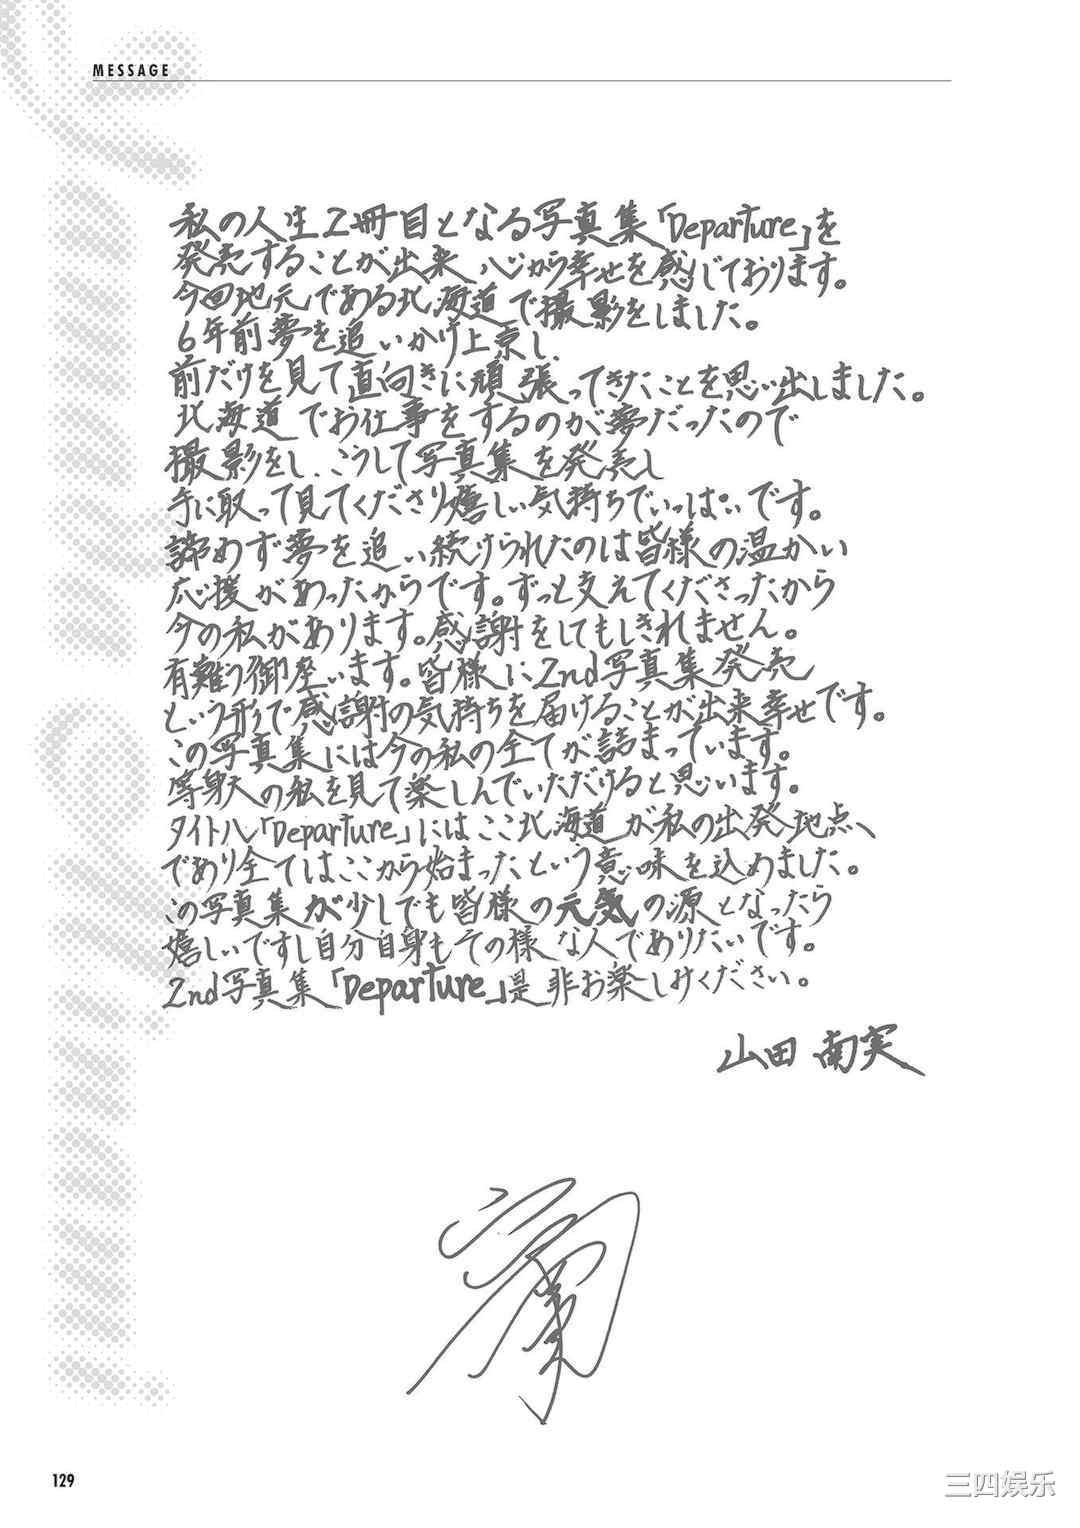 MESSAGE
私の人生2冊目となる写真集「Departure」を
発売することが出来、心から幸せを感じております。
今回地元である北海道で撮影をしました。
6年前夢を追いかけ上京し、
前だけを見て直向きに頑張ってきたことを思い出しました。
北海道でお仕事をするのが夢だったので
撮影をし、こうして写真集を発売し
手に取って見てくださり嬉しい気持ちでいっぱいです。
諦めず夢を追い続けられたのは皆様の温かい
応援があったからです。ずっと支えてくださったから
今の私があります。感謝をしてもしきれません。
有難う御座います。皆様に2nd写真集発売
という形で感謝の気持ちを届けることが出来幸せです。
この写真集には今の私の全てが詰まっています。
等身大の私を見て楽しんでいただけると思います。
タイトル「Departure」にはここ北海道が私の出発地点、
であり全てはここから始まったという意味を込めました。
この写真集が少しでも皆様の元気の源となったら
嬉しいですし自分自身もその様な人でありたいです。
2nd写真集「Departure」是非お楽しみください。
山田 南実
129
三四娱乐